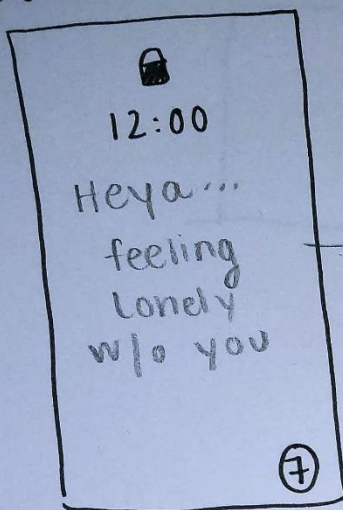 12:00
Heya...
feeling
lonely
w/o you
7